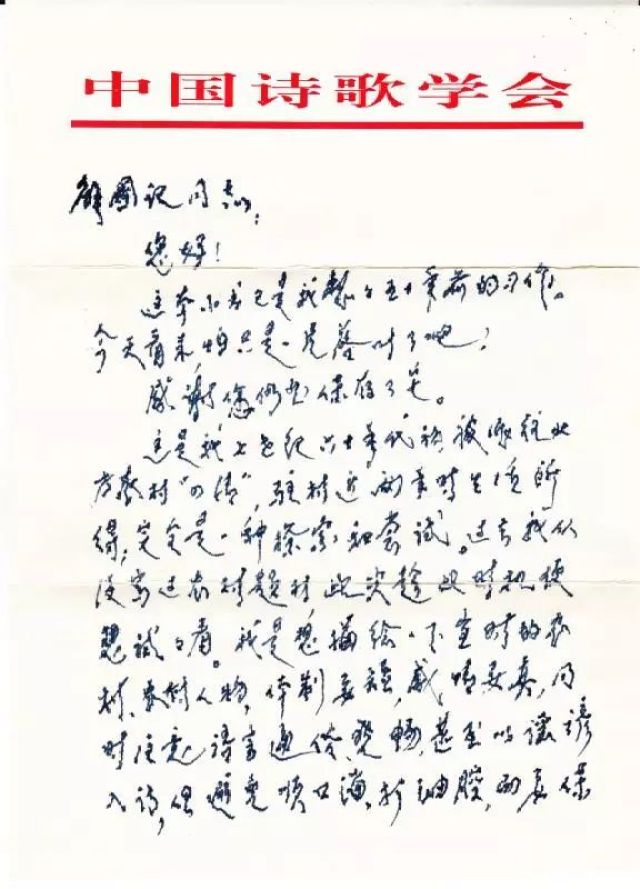 中国诗歌学会
解国记同志:
您好!
这本小书已是我五十年前的习作。
今天看来怕只是一了吧!
感谢您们保存了它。
这是我上世纪六十年代初被派往北
方农村“四清”,驻村近两年时生活所
得,完全是一种探索和尝试。过去我从
没写过农村题材,此次趁此时机便
想试试看。我是想描绘一下当时的农
村、农村人物,体制要短,感情要真,同
时注意语言通俗、晓畅,甚至以谣谚
入诗,但避免顺口溜,打油腔,而要保